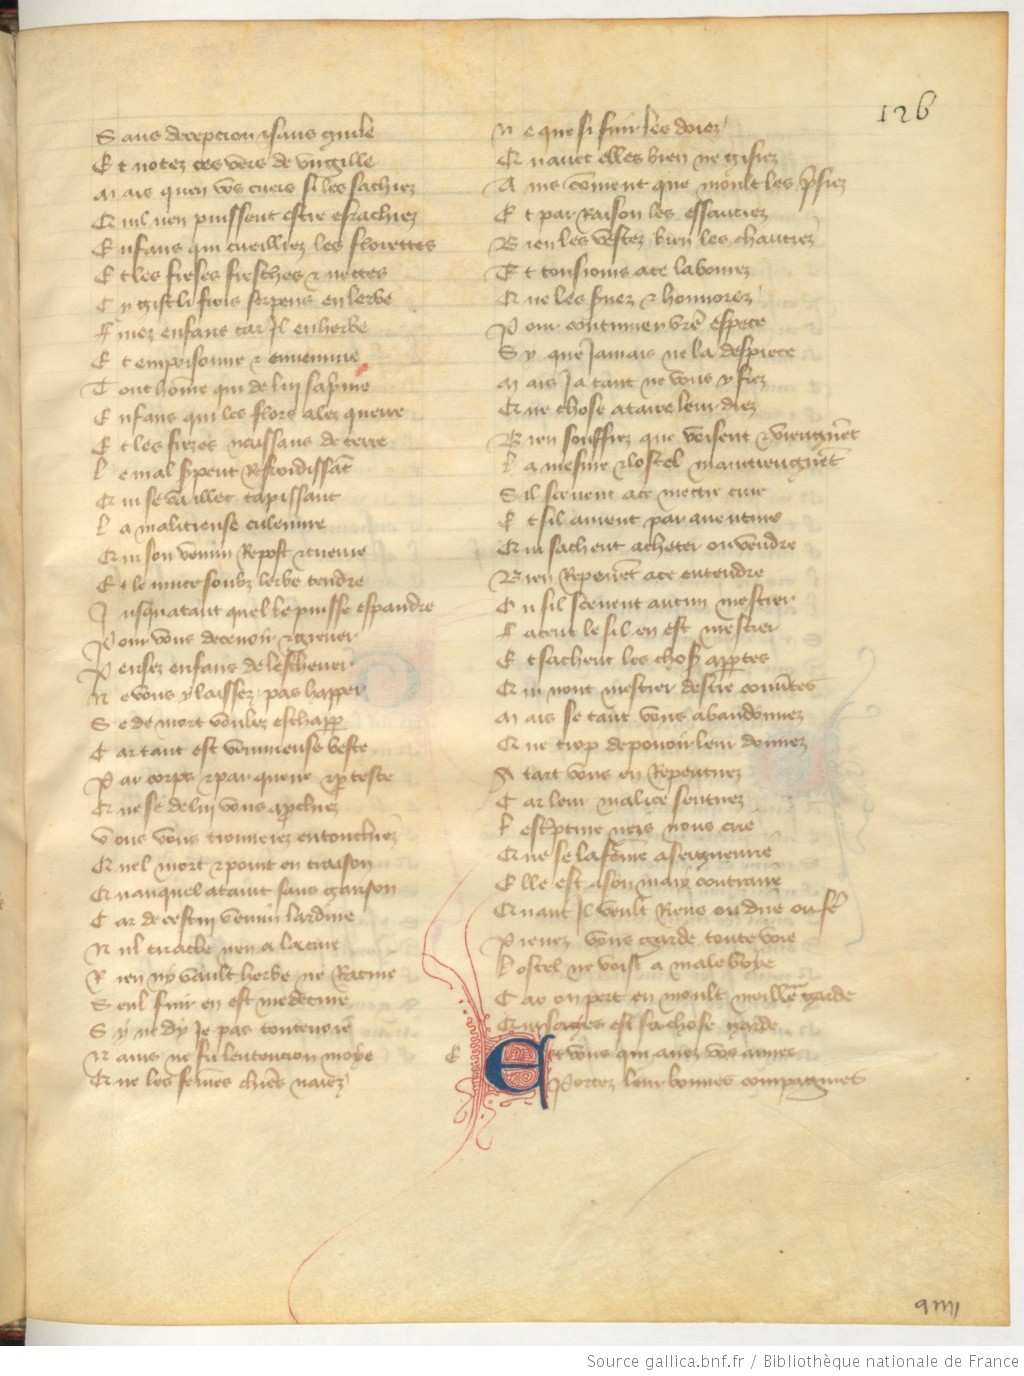 126
Sans decepcion & sans guile
Et notez ces vers de virgille
Mais quen vos cuers si les fachiez
Qu nil nen puissent estre esrachiez
Enfans qui cueilliez les florettes
Et les freses fresches & nettes
Cy gist li frois serpens en lerbe
Fuiez enfans car Il enherbe
Et empoisonne & envenime
Tout home qui de luy saprime
Enfans qui les flors alez querre
Et les frezes naissans de terre
Le mal serpent Refroidissant
Qui se va illec tapissant
La malicieuse culeuvre
Qui son venim Repost & cueuvre
Et le muce soubz lerbe tendre
Jusquatant quel le puisse espandre
Pour vous decevoir & grever
Pensez enfans de leschever
Ne vous y laissez pas happer
Se de mort voulez eschapper
Car tant est venimeuse beste
Par corps & par queue & par teste
Que se de luy vous aprochiez
Vous vous trouverez entouchiez
Quel mort & point en traison
Quanquel ataint sans garison
Car de cestui venim lardure
Nul triacle nen a la cure
Rien ny vault herbe ne Racine
Seul fuir en est medecine
Sy ne dy Je pas toutevoie
Nains ne fu lentencion moye
Que les femes chieres naiez
Ne que si fuir les doiez
Qu navec elles bien ne gisiez
Ains coment que moult les prisiez
Et par Raison les essauciez
Bien les vestez bien les chauciez
Et tousiours a ce labourez
Que les servez & honnorez
Pour continuer vre espece
Sy que Jamais ne la despiece
Mais Ja tant ne vous y fiez
Que chose a taire leur diez
Bien souffrez que voisent & viengnent
La mesnie & lostel maintiengnent
Sil scevent a ce mettre cure
Et sil avient par aventure
Qui sachent acheter ou vendre
Bien Repevent a ce entendre
Ou sil scevent aucun mestier
Facent le sil en est mestier
Et sachent les choses appertes
Qui nont mestier destre couvertes
Mais se tant vous abandonnez
Que trop de povoir leur donnez
A tart vous en Repentirez
Car leur malice sentirez
Lescripture neis nous crie
Que se la feme a seigneurie
Elle est a son mary contraire
Quant Il veult Riens ou dire ou faire
Prenez vous garde toute voie
Lostel ne voist a male voye
Car on pert en moult meilleure garde
Qui sages est sa chose garde
E
Et vous qui avez vos amies
Portez leur bonnes compagnies
q iiii
Source gallica.bnf.fr / Bibliothèque nationale de France